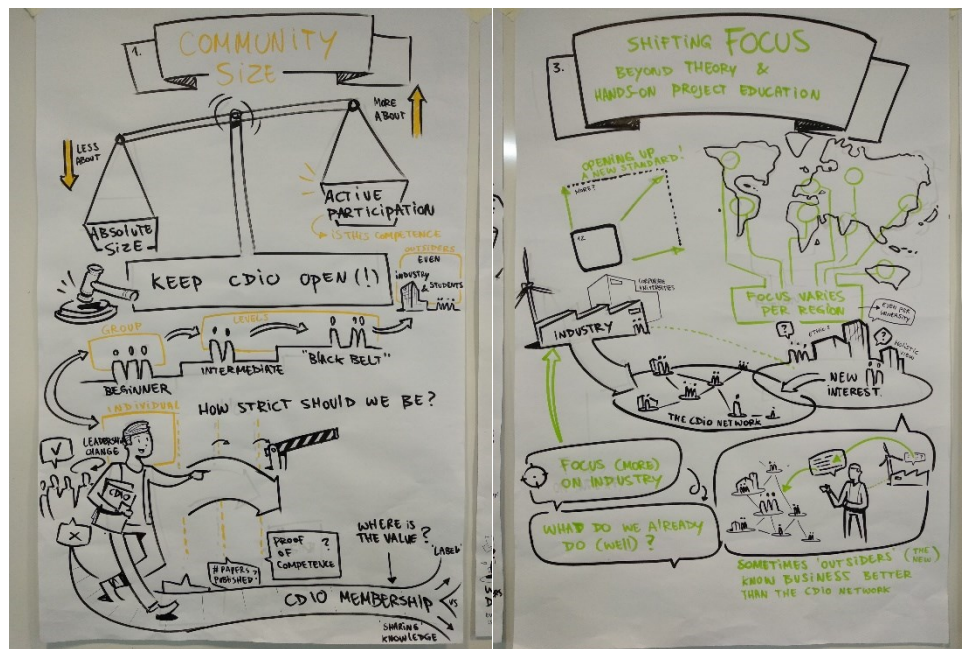 1.
COMMUNITY
SIZE
LESS
ABOUT
MORE
ABOUT
ABSOLUTE
SIZE
ACTIVE
PARTICIPATION
IS THIS COMPETENCE
KEEP CDIO OPEN(!)
OUTSIDERS
EVEN
INDUSTRY
&
STUDENTS
GROUP
LEVELS
BEGINNER
INTERMEDIATE
"BLACK BELT"
INDIVIDUAL
HOW STRICT SHOULD WE BE?
LEADERSHIP
CHANGE
CDIO
# PAPERS
PUBLISHED?
PROOF
OF
COMPETENCE
?
WHERE IS
THE VALUE?
'LABEL'
CDIO MEMBERSHIP
VS
'SHARING
KNOWLEDGE
3.
SHIFTING FOCUS
BEYOND THEORY &
HANDS-ON PROJECT EDUCATION
OPENING UP
A NEW STANDARD!
MORE?
FOCUS VARIES
PER REGION
CORPORATE
UNIVERSITIES
INDUSTRY
EVEN PER
UNIVERSITY
?
ETHICS
?
HOLISTIC
VIEW
NEW
INTEREST.
THE CDIO NETWORK
FOCUS (MORE)
ON INDUSTRY
WHAT DO WE ALREADY
DO (WELL)?
SOMETIMES 'OUTSIDERS' (THE NEW)
KNOW BUSINESS BETTER
THAN THE CDIO NETWORK